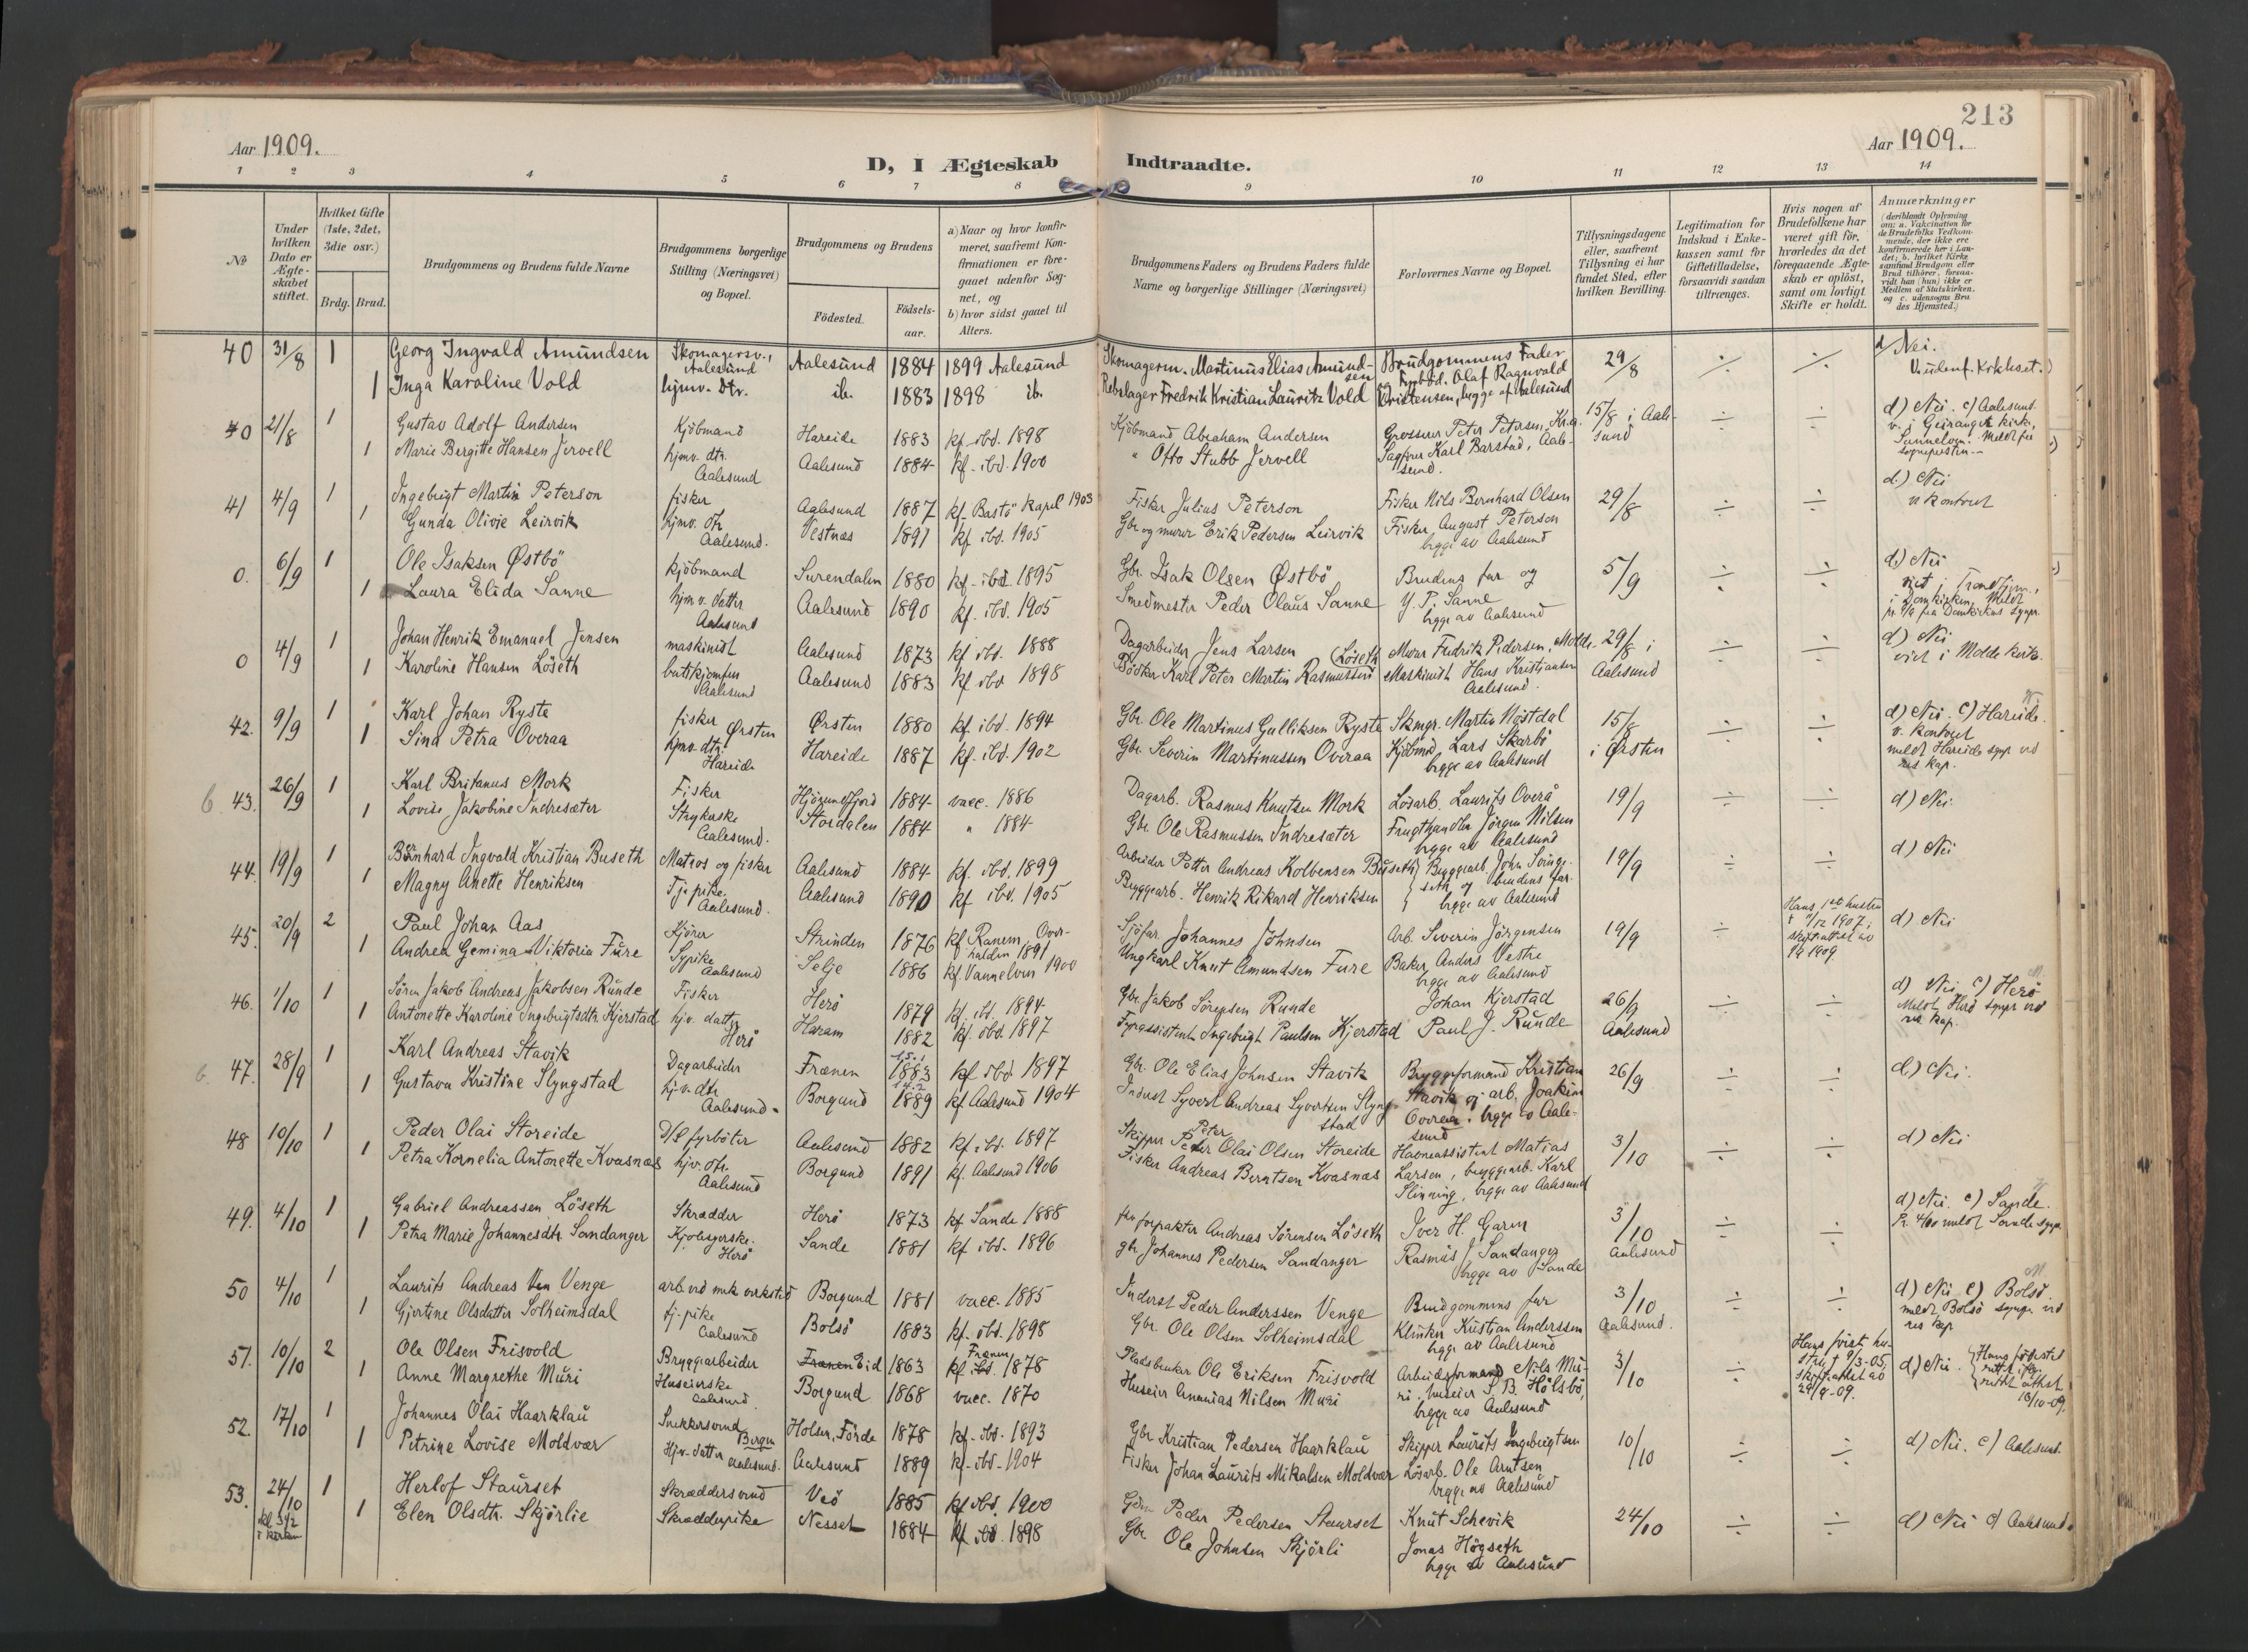 213
Aar 1909.
Aar 1909.
D, I Ægteskab Indtraadte.
1 2 3 4 5 6 7 8 9 10 11 12 13 14
No
Under hvilken Dato er Ægteskabet stiftet.
Hvilket Gifte (1ste, 2det, 3die osv.)
Brdg. Brud.
Brudgommens og Brudens fulde Navne
Brudgommens borgerlige Stilling (Næringsvei) og Bopæl.
Brudgommens og Brudens
Födested.
Födsels-aar.
a) Naar og hvor konfirmeret, saafremt Konfirmationen er foregaaet udenfor Sognet, og
b) hvor sidst gaaet til Alters.
Brudgommens Faders og Brudens Faders fulde Navne og borgerlige Stillinger (Næringsvei)
Forlovernes Navne og Bopæl.
Tillysningsdagene eller, saafremt Tillysning ei har fundet Sted, efter hvilken Bevilling.
Legitimation for Indskud i Enkekassen samt for Giftetilladelse, forsaavidt saadan tiltrænges.
Hvis nogen af Brudefolkene har været gift för, hvorledes da det foregaaende Ægteskab er oplöst, samt om lovligt Skifte er holdt.
Anmærkninger (deriblandt Oplysning om: a. Vakcination for de Brudefolks Vedkommende, der ikke ere konfirmerede her i Landet; b. hvilket Kirkesamfund Brudgom eller Brud tilhörer, forsaavidt han (hun) ikke er Medlem af Statskirken, og c. udensogns Brudes Hjemsted.)
40 31/8 1 Georg Ingvald Amundsen Skomagersv., Aalesund Aalesund 1884 1899 Aalesund Skomagerm. Martinus Elias Amundsen Brudgommens Fader 29/8 ÷ ÷ d) Nei.
1 Inga Karoline Vold hjmv. Dtr. ib. 1883 1898 ib. Rebslager Fredrik Kristian Lauritz Vold og Olaf Ragnvald Kristensen, begge af Aalesund
40 21/8 1 Gustav Adolf Andersen Kjöbmand Hareide 1883 kf. ibd. 1898 Kjöbmand Abraham Andersen Grosserer Peter Petersen, Kr.a. 15/8 i Aalesund ÷ ÷ d) Nei. c) Aalesund. v. i Geiranger kirke, Sunnelven. Meldt fra sogneprsten.
1 Marie Bergitte Hansen Jervell hjmv. dtr. Aalesund Aalesund 1884 kf. ibd. 1900 " Otto Stubb Jervell Sagförer Karl Barstad, Aalesund.
41 4/9 1 Ingebrigt Martin Peterson fisker Aalesund 1887 kf. Bastö kapel 1903 Fisker Julius Peterson Fisker Nils Bernhard Olsen 29/8 ÷ ÷ d.) Nei v kontoret
1 Gunda Olivie Leirvik hjmv. dtr Aalesund. Vestnæs 1891 kf. ibd. 1905 Gbr. og murer Erik Pedersen Leirvik Fisker August Peterson begge av Aalesund
0. 6/9 1 Ole Isaksen Østbö kjöbmand Surendalen 1880 kf. ibd. 1895 Gbr. Isak Olsen Østbö Brudens far og 5/9 ÷ ÷ d) Nei viet i Trondhjem, i Domkirken. Meldt fra Domkirkens sogpr.
1 Laura Elida Sanne hjmv. datter Aalesund Aalesund 1890 kf. ibd. 1905 Smedmester Peder Olaus Sanne Y. P. Sanne begge av Aalesund
0 4/9 1 Johan Henrik Emanuel Jensen maskinist Aalesund 1873 kf ibd. 1888 Dagarbeider Jens Larsen Murer Fredrik Pedersen, Molde 29/8 i Aalesund ÷ ÷ d) Nei viet i Molde kirke.
1 Karoline Hansen Löseth butikjomfru Aalesund Aalesund 1883 kf ibd 1898 Bödker Karl Peter Martin Rasmussen (Löseth Maskinist Hans Kristiansen Aalesund.
42. 9/9 1 Karl Johan Ryste fisker Ørsten Ørsten 1880 kf. ibd. 1894 Gbr. Ole Martinus Gulliksen Ryste Skmgr. Martin Nöstdal 15/8 i Ørsten ÷ ÷ d) Nei. c) Hareide. v. kontoret meldt Hareide sogpr ved res kap.
1 Sina Petra Overaa hjmv. dtr. Hareide Hareide 1887 kf. ibd. 1902 Gbr. Severin Martinussen Overaa Kjöbmd Lars Skarbö begge av Aalesund
6 43. 26/9 1 Karl Britanus Mork Fisker Hjörundfjord 1884 vacc. 1886 Dagarb. Rasmus Knutsen Mork Lösarb. Laurits Overå 19/9 ÷ ÷ d) Nei.
1 Lovise Jakobine Indresæter Strykerske Aalesund. Stordalen 1884 " 1884 Gbr. Ole Rasmussen Indresæter Frugthandler Jörgen Nilsen begge av Aalesund
44. 19/9 1 Bernhard Ingvald Kristian Buseth Matros og fisker Aalesund 1884 kf. ibd. 1899 Arbeider Petter Andreas Kolbensen Buseth Bryggearb. John Svingeseth og brudens far. begge av Aalesund 19/9 ÷ ÷ d) Nei
1 Magny Anette Henriksen Tj. pike. Aalesund. Aalesund 1890 kf ibd. 1905 Bryggearb. Henrik Rikard Henriksen
45. 20/9 2 Paul Johan Aas Kjörer Strinden 1876 kf Ranem, Overhalden 1891 Sjöfar. Johannes Johnsen Arb. Severin Jörgensen 19/9 ÷ Hans 1ste hustru † 11/12 1907; skifteattest av 1909 d) Nei
1 Andrea Gemina Viktoria Fure Sypike Aalesund Selje 1886 kf Vannelven 1900 Ungkarl Knut Amundsen Fure Baker Anders Vestre begge av Aalesund
46. 1/10 1 Sören Jakob Andreas Jakobsen Runde Fisker Herö 1879 kf. ibd. 1894 Gbr. Jakob Sörensen Runde Johan Kjerstad 26/9 Aalesund ÷ ÷ d) Nei. c) Herö Meldt Herö sogpr ved res kap.
1 Antonette Karoline Ingebrigtsdtr. Kjerstad hjv. datter Herö Haram 1882 kf. ibd. 1897 Fyrassistent Ingebrigt Paulsen Kjerstad Paul J. Runde
6. 47. 28/9 1 Karl Andreas Stavik Dagarbeider Frænen 1883 kf ibd 1897 Gbr. Ole Elias Johnsen Stavik Bryggeformand Kristian Stavik og arb. Joakim Overaa. begge av Aalesund 26/9 ÷ ÷ d) Nei.
1 Gustava Kristine Slyngstad hjv. dtr Aalesund. Borgund 1889 kf. Aalesund 1904 Inderst Syvert Andreas Syvertsen Slyngstad
48 10/10 1 Peder Olai Storeide D/S fyrböter Aalesund 1882 kf. ibd. 1897 Skipper Peter Olai Olsen Storeide Havneassistent Matias Larsen, bryggearb. Karl Slinning, begge av Aalesund 3/10 ÷ ÷ d) Nei
1 Petra Kornelia Antonette Kvasnæs hjv. dtr. Aalesund Borgund 1891 kf. Aalesund 1906 Fisker Andreas Berntsen Kvasnæs
49. 4/10 1 Gabriel Andreassen Löseth Skrædder Herö 1873 kf Sande 1888 forpakter Andreas Sörensen Löseth Iver H. Garen 3/10 Aalesund ÷ ÷ d) Nei. c) Sande. Pr. 4/10 meldt Sande sogpr.
1 Petra Marie Johannesdtr. Sandanger Kjolesyerske. Herö Sande 1881 kf ibd. 1896 gbr. Johannes Pedersen Sandanger Rasmus J. Sandanger begge av Sande
50 4/10 1 Laurits Andreas Venge arb. ved mek verksted Borgund 1881 vacc. 1885 Inderst Peder Anderssen Venge Brudgommens far 3/10 Aalesund. ÷ ÷ d) Nei c) Bolsö. meldt Bolsö sognepr ved res kap
1 Gjertine Olsdatter Solheimsdal tj. pike Aalesund Bolsö 1883 kf. ibd. 1898 Gbr. Ole Olsen Solheimsdal Klinker Kristian Anderssen begge av Aalesund
51. 10/10 2 Ole Olsen Frisvold Bryggearbeider Frænen Eid 1863 kf Frænen 1878 Pladsbruker Ole Eriksen Frisvold Arbeidsformand Nils Muri. huseier P. B. Hølsbö, begge av Aalesund 3/10 ÷ Hans först hustru † 9/3-05, skifteattest av 29/9-09. d) Nei.
1 Anne Margrethe Muri Huseierske Aalesund. Borgund 1868 vacc. 1870 Huseier Ananias Nilsen Muri
52. 17/10 1 Johannes Olai Haarklau Snekkersvend Bergen Holsen, Förde 1878 kf. ibd. 1893 Gbr. Kristian Pedersen Haarklau Skipper Laurits Ingebrigtsen 10/10 ÷ ÷ d) Nei. c) Aalesund.
1 Petrine Lovise Moldvær Hjv. datter Aalesund. Aalesund 1889 kf. ibd. 1904 Fisker Johan Laurits Mikalsen Moldvær Lösarb. Ole Arntsen begge av Aalesund
53. 24/10 kl. 5 1/2 i kirken 1 Herlof Staurset Skræddersvend Veö 1885 kf ibd. 1900 Peder Pedersen Staurset Knut Schevik 24/10 ÷ ÷ d) Nei c) Aalesund.
1 Elen Olsdtr. Skjörlie Skrædderpike Nesset 1884 kf ibd 1898 Gbr Ole Johnsen Skjörli Jonas Högseth begge av Aalesund